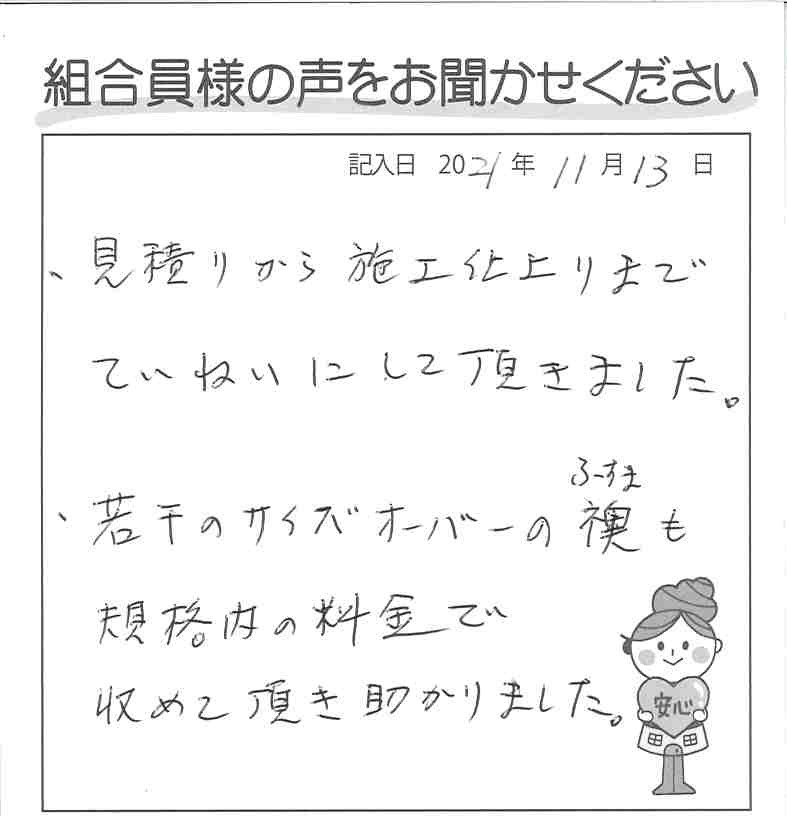 組合員様の声をお聞かせください
記入日 2021年 11月13日
、見積りから施工仕上りまで
ていねいにして頂きました。
ふすま
、若干のサイズオーバーの襖も
規格内の料金で
収めて頂き助かりました。
安心